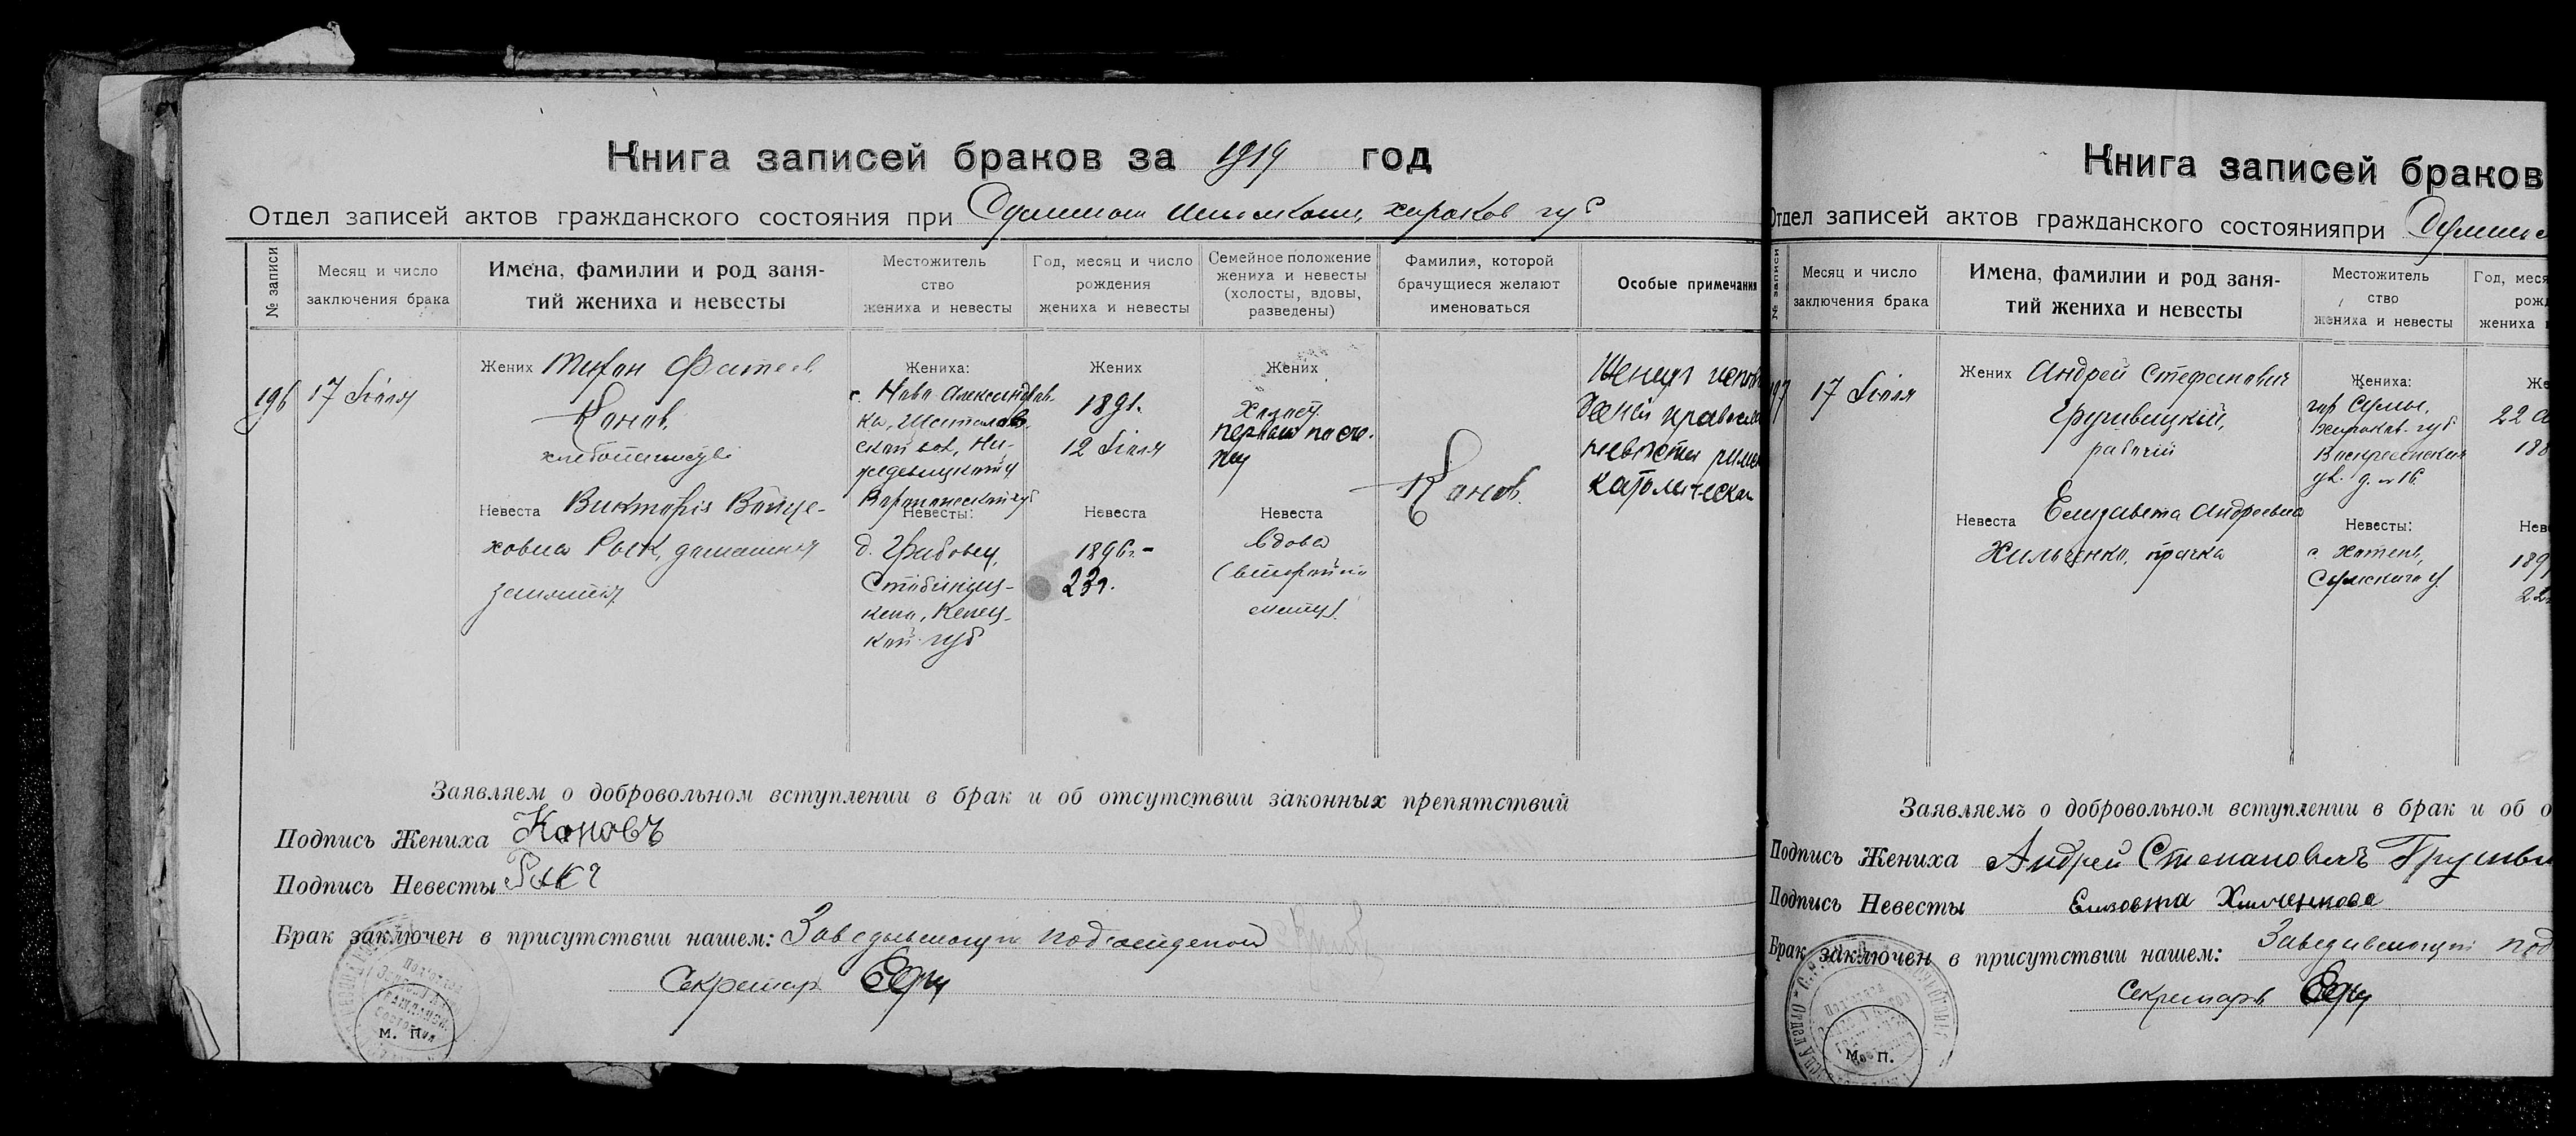 Книга записей браков за 1919 год
Отдел записей актов гражданского состояния при Сумском Исполкоме, харьков губ
№ записи
Месяц и число
заключения брака
Имена, фамилии и род заня-
тий жениха и невесты
Местожитель
ство
жениха и невесты
Год, месяц и число
рождения
жениха и невесты
Семейное положение
жениха и невесты
(холосты, вдовы,
разведены)
Фамилия, которой
брачущиеся желают
именоваться
Особые примечания
196
17 Июля
Жених Тихон Фатеев
Конов,
Невеста Виктория Войце-
ховна Рыск, домашния
занятия
Жениха:
с. Ново Александров-
ка, Шаталов
ской вол, Ни-
жедевицкого у
Воронежской губ
Невесты:
д. Грабовец,
кого, Келец-
кой губ
Жених
1891.
12 Июля
Невеста
1896г-
23г.
Жених
Холост.
первым по сче-
ту
Невеста
вдова
(вторым по
счету)
Конов.
Жених испов
дания правосла
невеста римс
католическая
Заявляем о добровольном вступлении в брак и об отсутствии законных препятствий
Подпись Жениха Коновъ
Подпись Невесты
Брак заключен в присутствии нашем: Заведывающий подотделом
Секретарь
М. П.
Книга записей браков
Отдел записей актов гражданского состоянияпри Сумско
№ записи
Месяц и число
заключения брака
Имена, фамилии и род заня-
тий жениха и невесты
Местожитель
ство
жениха и невесты
Год, меся
рожд
жениха и
197
17 Июля
Жених Андрей Стефанович
Грушвицкий,
рабочий
Невеста Елизавета Андреевна
Хильченко, прачка
Жениха:
гор Сумы,
Харьков. губ
Воскресенская
ул. д. № 16
Невесты:
с. Хотень,
Сумского у
Же
22
188
Нев
189
22
Заявляемъ о добровольном вступлении в брак и об о
Подпись Жениха Андрей Степановичъ Грушви
Подпись Невесты Елизовта Хильченкова
Брак заключен в присутствии нашем: Заведывающий под
Секретарь
М. П.